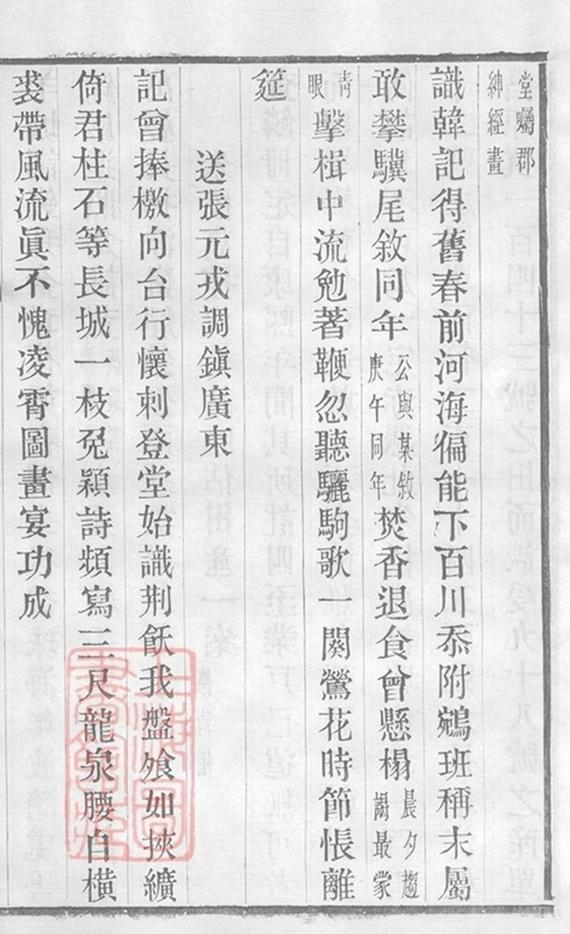 堂屬郡紳經畫
識韓記得舊春前河海偏能下百川忝附鵷班稱末屬
敢攀驥尾敘同年公與某敘庚午同年焚香退食曾懸榻晨夕趨謁最蒙
青眼擊楫中流勉著鞭忽聽驪駒歌一闋鶯花時節悵離
筵
送張元戎調鎭廣東
記曾捧檄向台行懷刺登堂始識荆飫我盤飱如挾纊
倚君柱石等長城一枝兔穎詩頻寫三尺龍泉腰自橫
裘帶風流眞不愧凌霄圖畫宴功成